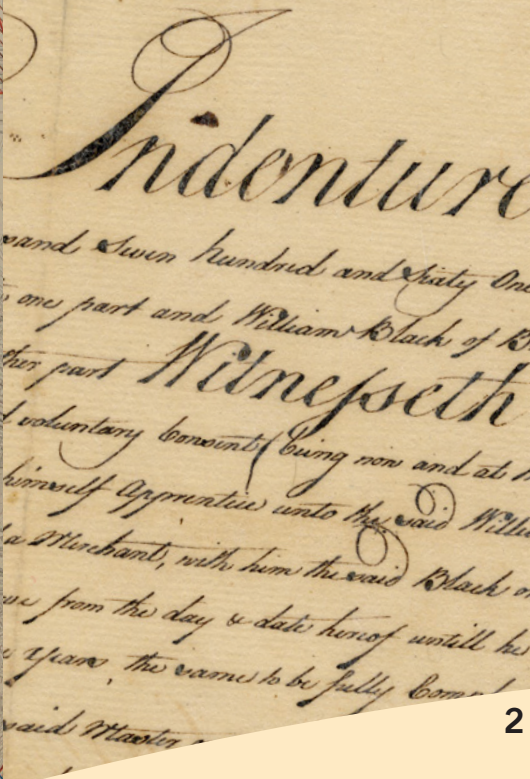 Indenture
and Seven hundred and Sixty One
one part and William Black of B
ther part Witnesseth
voluntary Consent (being now and at
himself Apprentice unto the said Willi
a Merchant, with him the said Black or
from the day & date hereof untill he
Years the same to be fully Comp
said Master
2